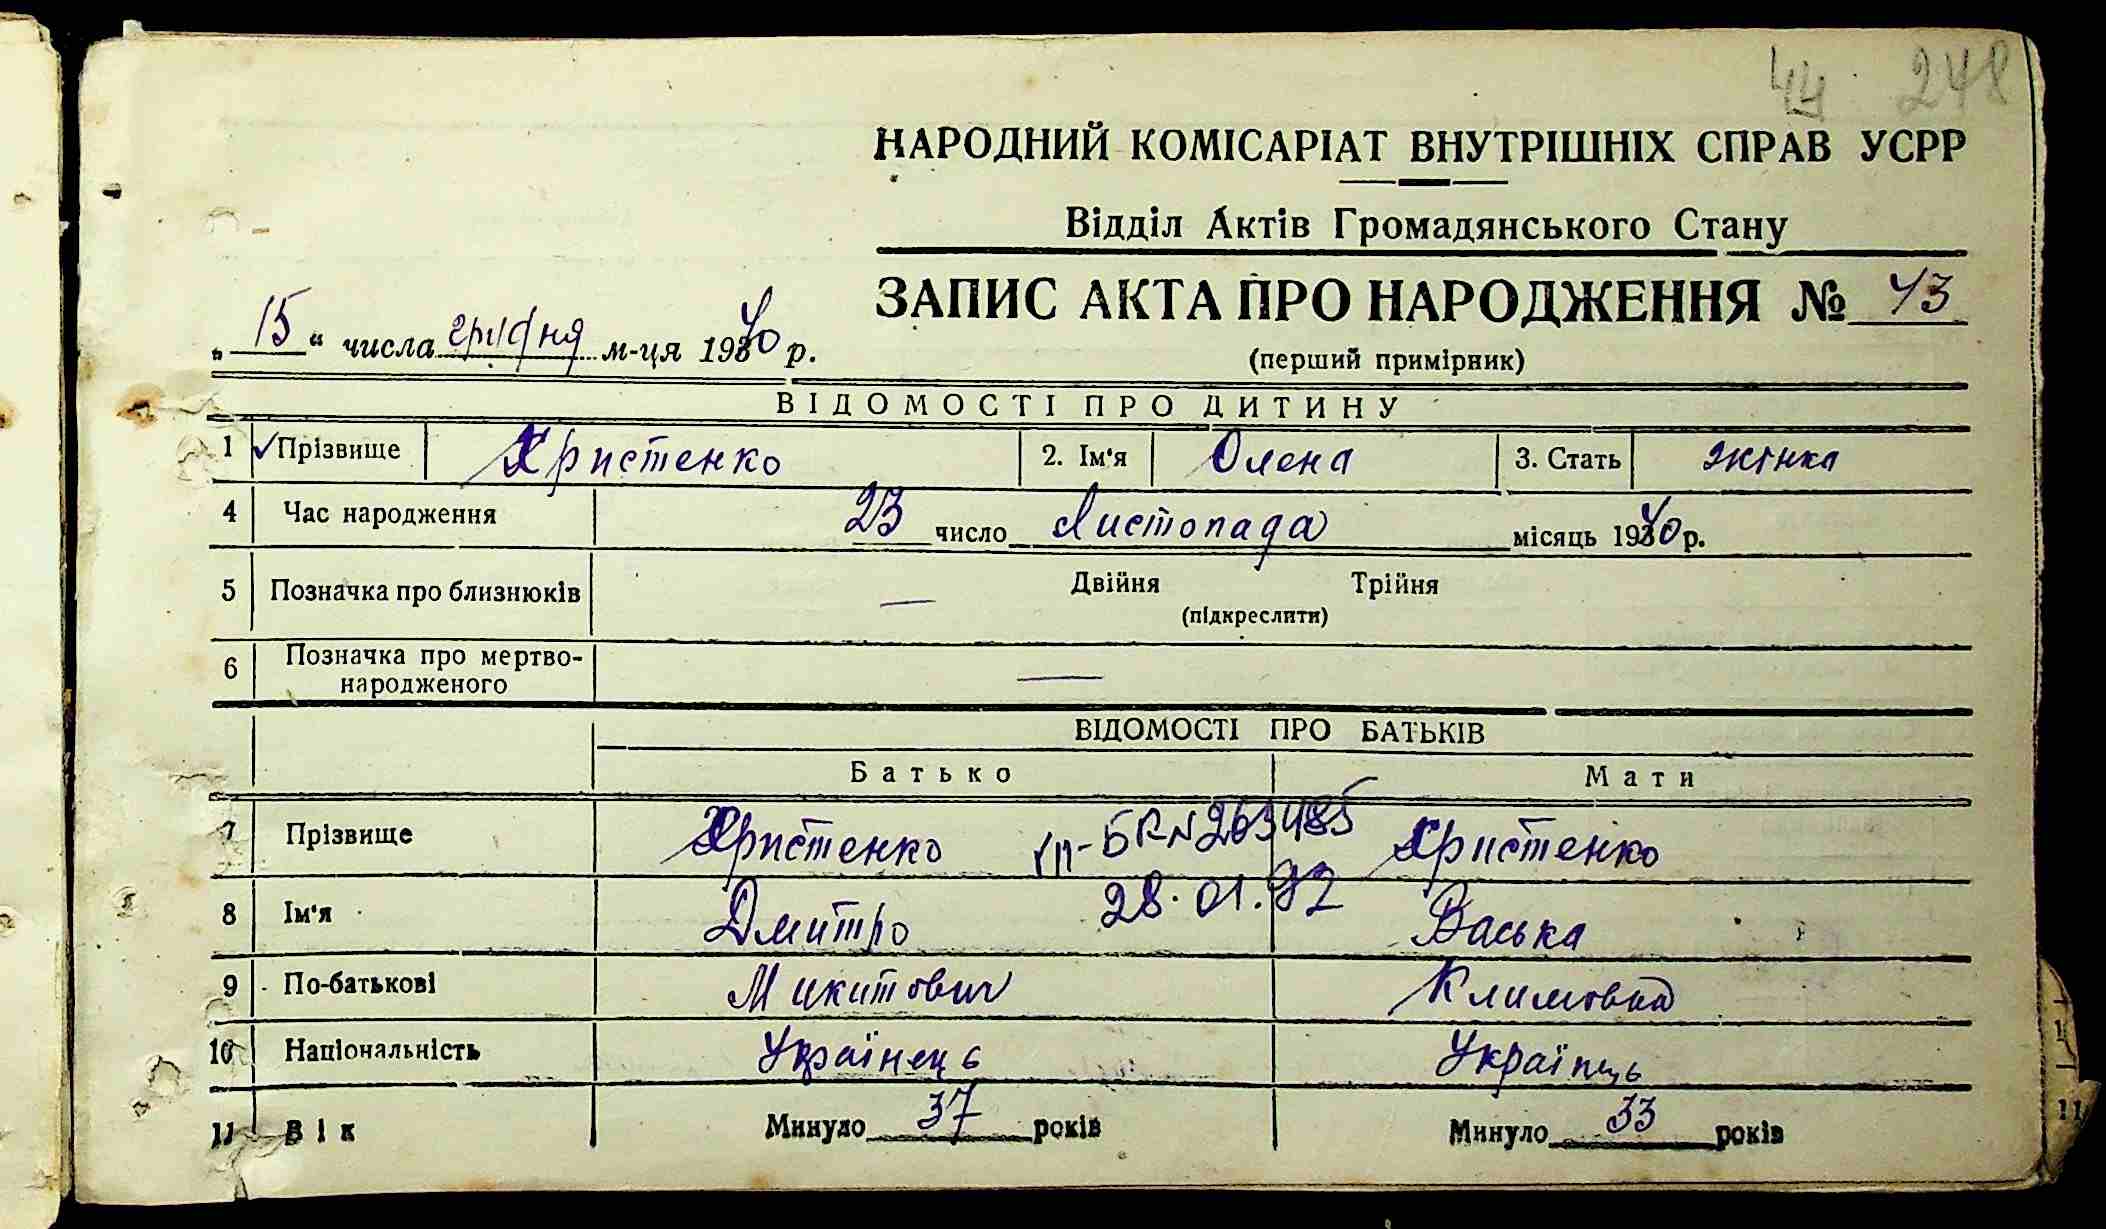 44 248
НАРОДНИЙ КОМІСАРІАТ ВНУТРІШНІХ СПРАВ УСРР
Відділ Актів Громадянського Стану
ЗАПИС АКТА ПРО НАРОДЖЕННЯ № 43
„ 15 “ числа грудня м-ця 1940 р.
(перший примірник)
ВІДОМОСТІ ПРО ДИТИНУ
1 Прізвище Христенко 2. Ім'я Олена 3. Стать жінка
4 Час народження 23 число Листопада місяць 1940 р.
5 Позначка про близнюків — Двійня Трійня
(підкреслити)
6 Позначка про мертво-
народженого —
ВІДОМОСТІ ПРО БАТЬКІВ
Батько Мати
7 Прізвище Христенко 263485 Христенко
8 Ім'я Дмитро 28.01. Васька
9 По-батькові Микитович Климовна
10 Національність Українець Українць
11 Вік Минуло 37 років Минуло 33 років
11